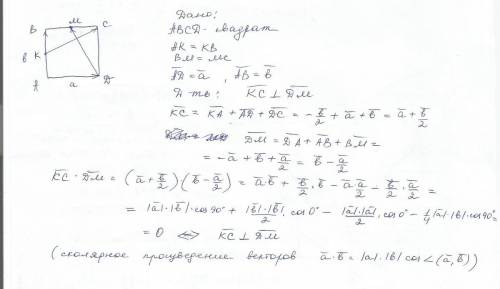 Дано:
ABCD - квадрат
AK = KB
BM = MC
A̅D̅ = a̅ , A̅B̅ = b̅
Д-ть: K̅C̅ ⊥ D̅M̅
K̅C̅ = K̅A̅ + A̅D̅ + D̅C̅ = - b̅/2 + a̅ + b̅ = a̅ + b̅/2
D̅M̅ = D̅A̅ + A̅B̅ + B̅M̅ =
= -a̅ + b̅ + a̅/2 = b̅ - a̅/2
K̅C̅ · D̅M̅ = (a̅ + b̅/2)(b̅ - a̅/2) = a̅b̅ + b̅/2 · b̅ - a̅ a̅/2 - b̅/2 · a̅/2 =
= |a̅|·|b̅|·cos 90° + |b̅|·|b̅|/2 · cos 0° - |a̅|·|a̅|/2 · cos 0° - 1/4 |a̅|·|b̅| cos 90° =
= 0 ⇔ K̅C̅ ⊥ D̅M̅
(сколярное произведение векторов a̅·b̅ = |a|·|b| cos∠(a̅, b̅))
B M C
K
b
A a D